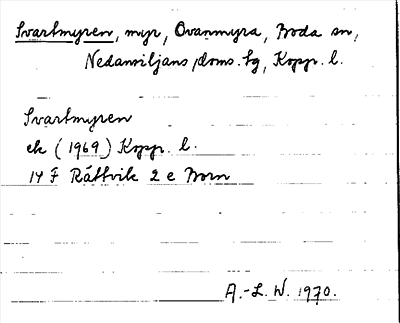 Svartmyren, myr, Ovanmyra, Boda sn,
Nedansiljans doms. tg, Kopp. l.
Svartmyren
ek (1969) Kopp. l.
14 F Rättvik 2 e Born
A.-L. W. 1970.